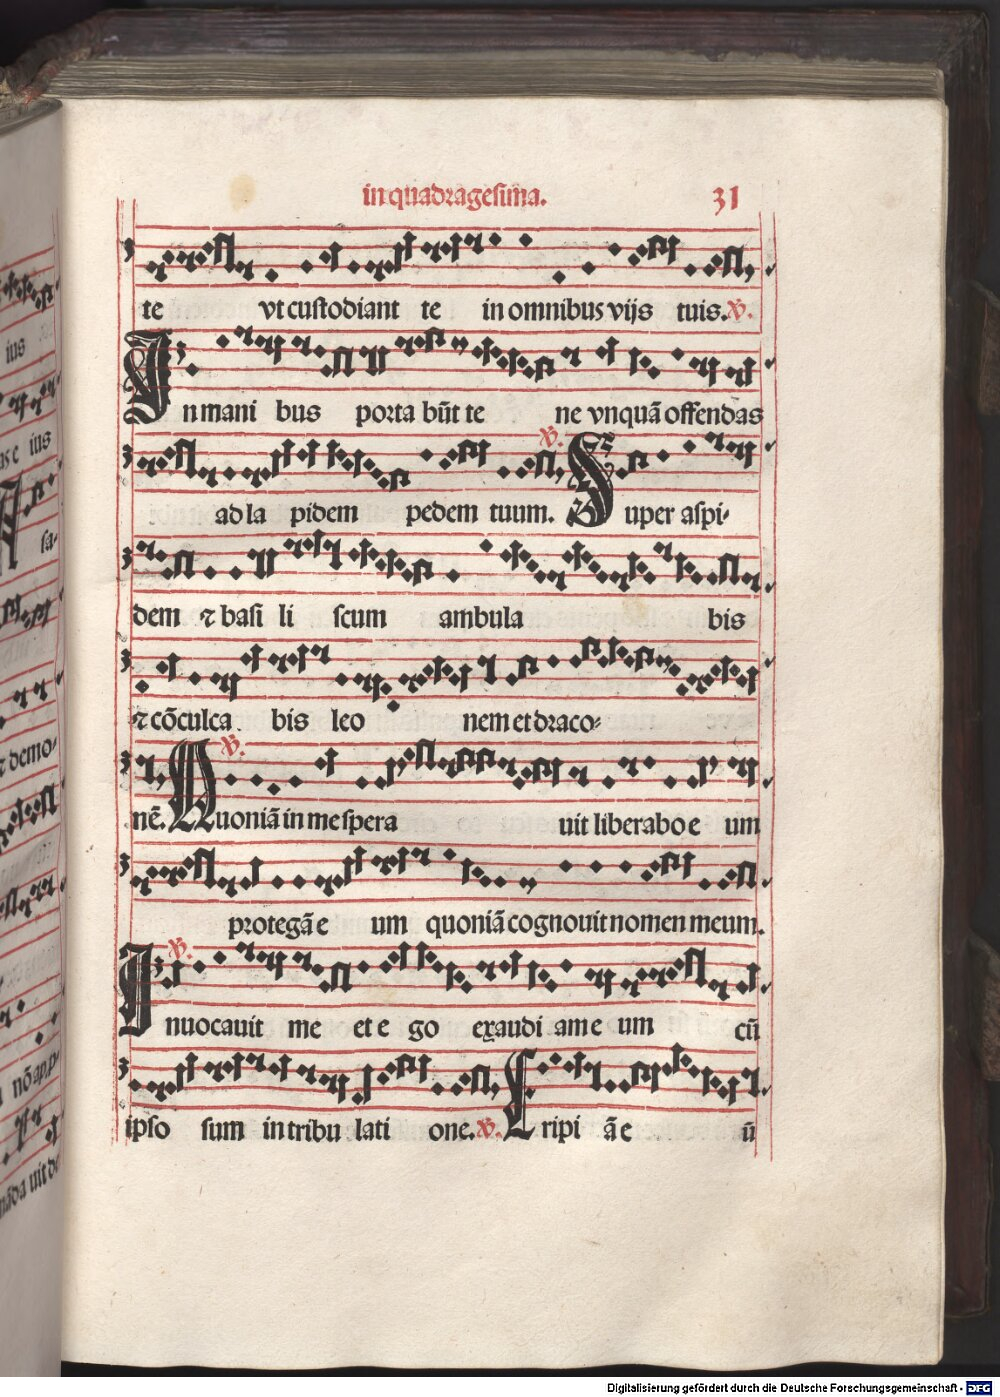 in quadragesima. 31
te vt custodiant te in omnibus vijs tuis. ℣.
In mani bus porta būt te ne vnquā offendas
℣.
ad la pidem pedem tuum. Super aspi-
dem ⁊ basi li scum ambula bis
⁊ cōculca bis leo nem et draco-
℣.
nē. Quoniā in me spera uit liberabo e um
protegā e um quoniā cognouit nomen meum.
℣.
Inuocauit me et e go exaudi am e um cū
ipso sum in tribu lati one. ℣. Eripi ā e ū
ius
ius
sa-
⁊ demo-
nō app-
uit de
Digitalisierung gefördert durch die Deutsche Forschungsgemeinschaft - DFG